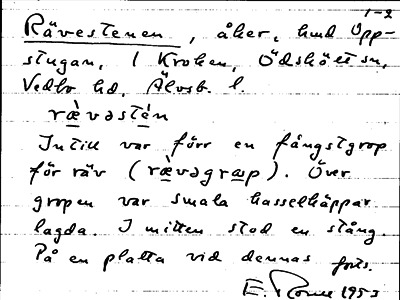 1-2
Rävestenen, åker, hmd Upp-
stugan, 1 Kroken, Ödskölt sn,
Vedbo hd, Älvsb. l.
rǽvəstén
Intill var förr en fångstgrop
för räv (rǽvəgrɷp). Över
gropen var smala hasselkäppar
lagda. I mitten stod en stång.
På en platta vid dennas forts.
E. 1953